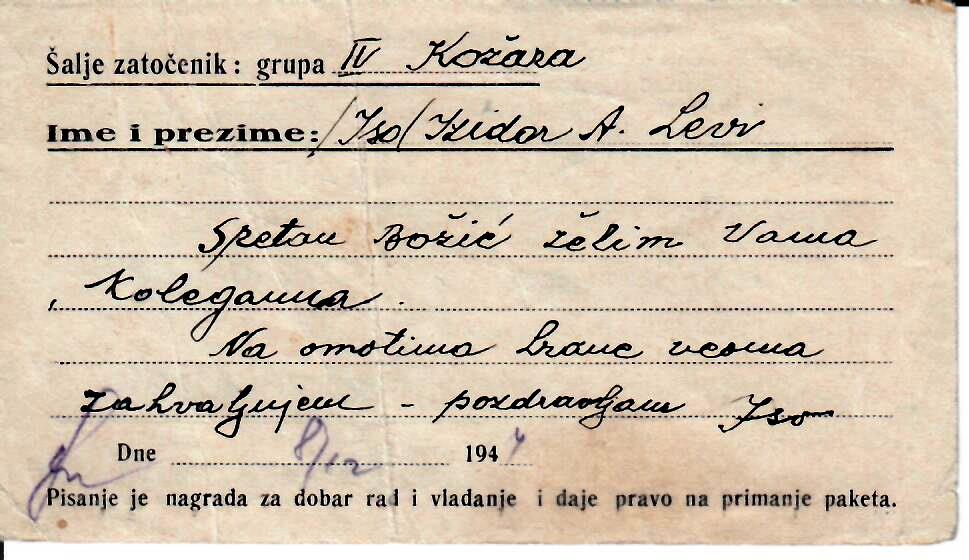 Šalje zatočenik: grupa IV Kožara
Ime i prezime: /Iso/ Izidor A. Levi
Sretan Božić želim Vama
i Kolegama.
Na omotima hrane veoma
zahvaljujem - pozdravljam Iso
Dne 8/12 1944
Pisanje je nagrada za dobar rad i vladanje i daje pravo na primanje paketa.